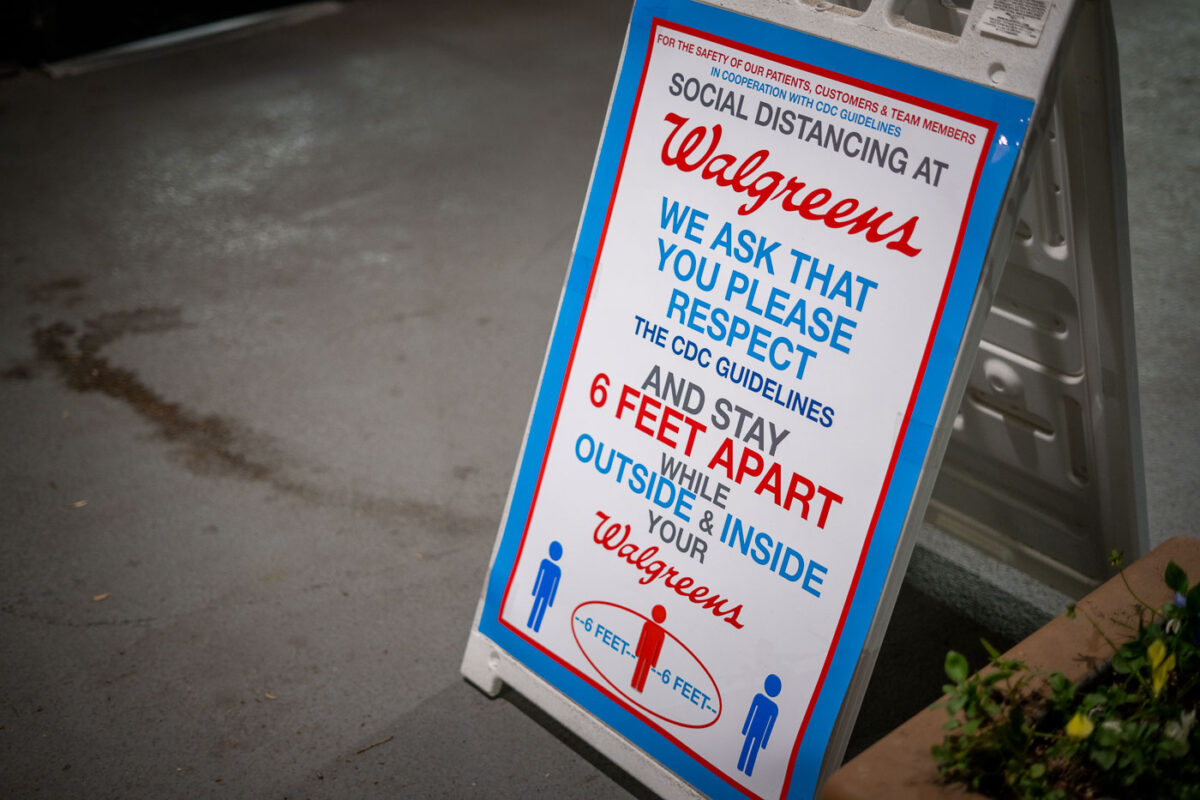 FOR THE SAFETY OF OUR PATIENTS, CUSTOMERS & TEAM MEMBERS
IN COOPERATION WITH CDC GUIDELINES
SOCIAL DISTANCING AT
Walgreens
WE ASK THAT
YOU PLEASE
RESPECT
THE CDC GUIDELINES
AND STAY
6 FEET APART
WHILE
OUTSIDE & INSIDE
YOUR
Walgreens
--6 FEET-- --6 FEET--